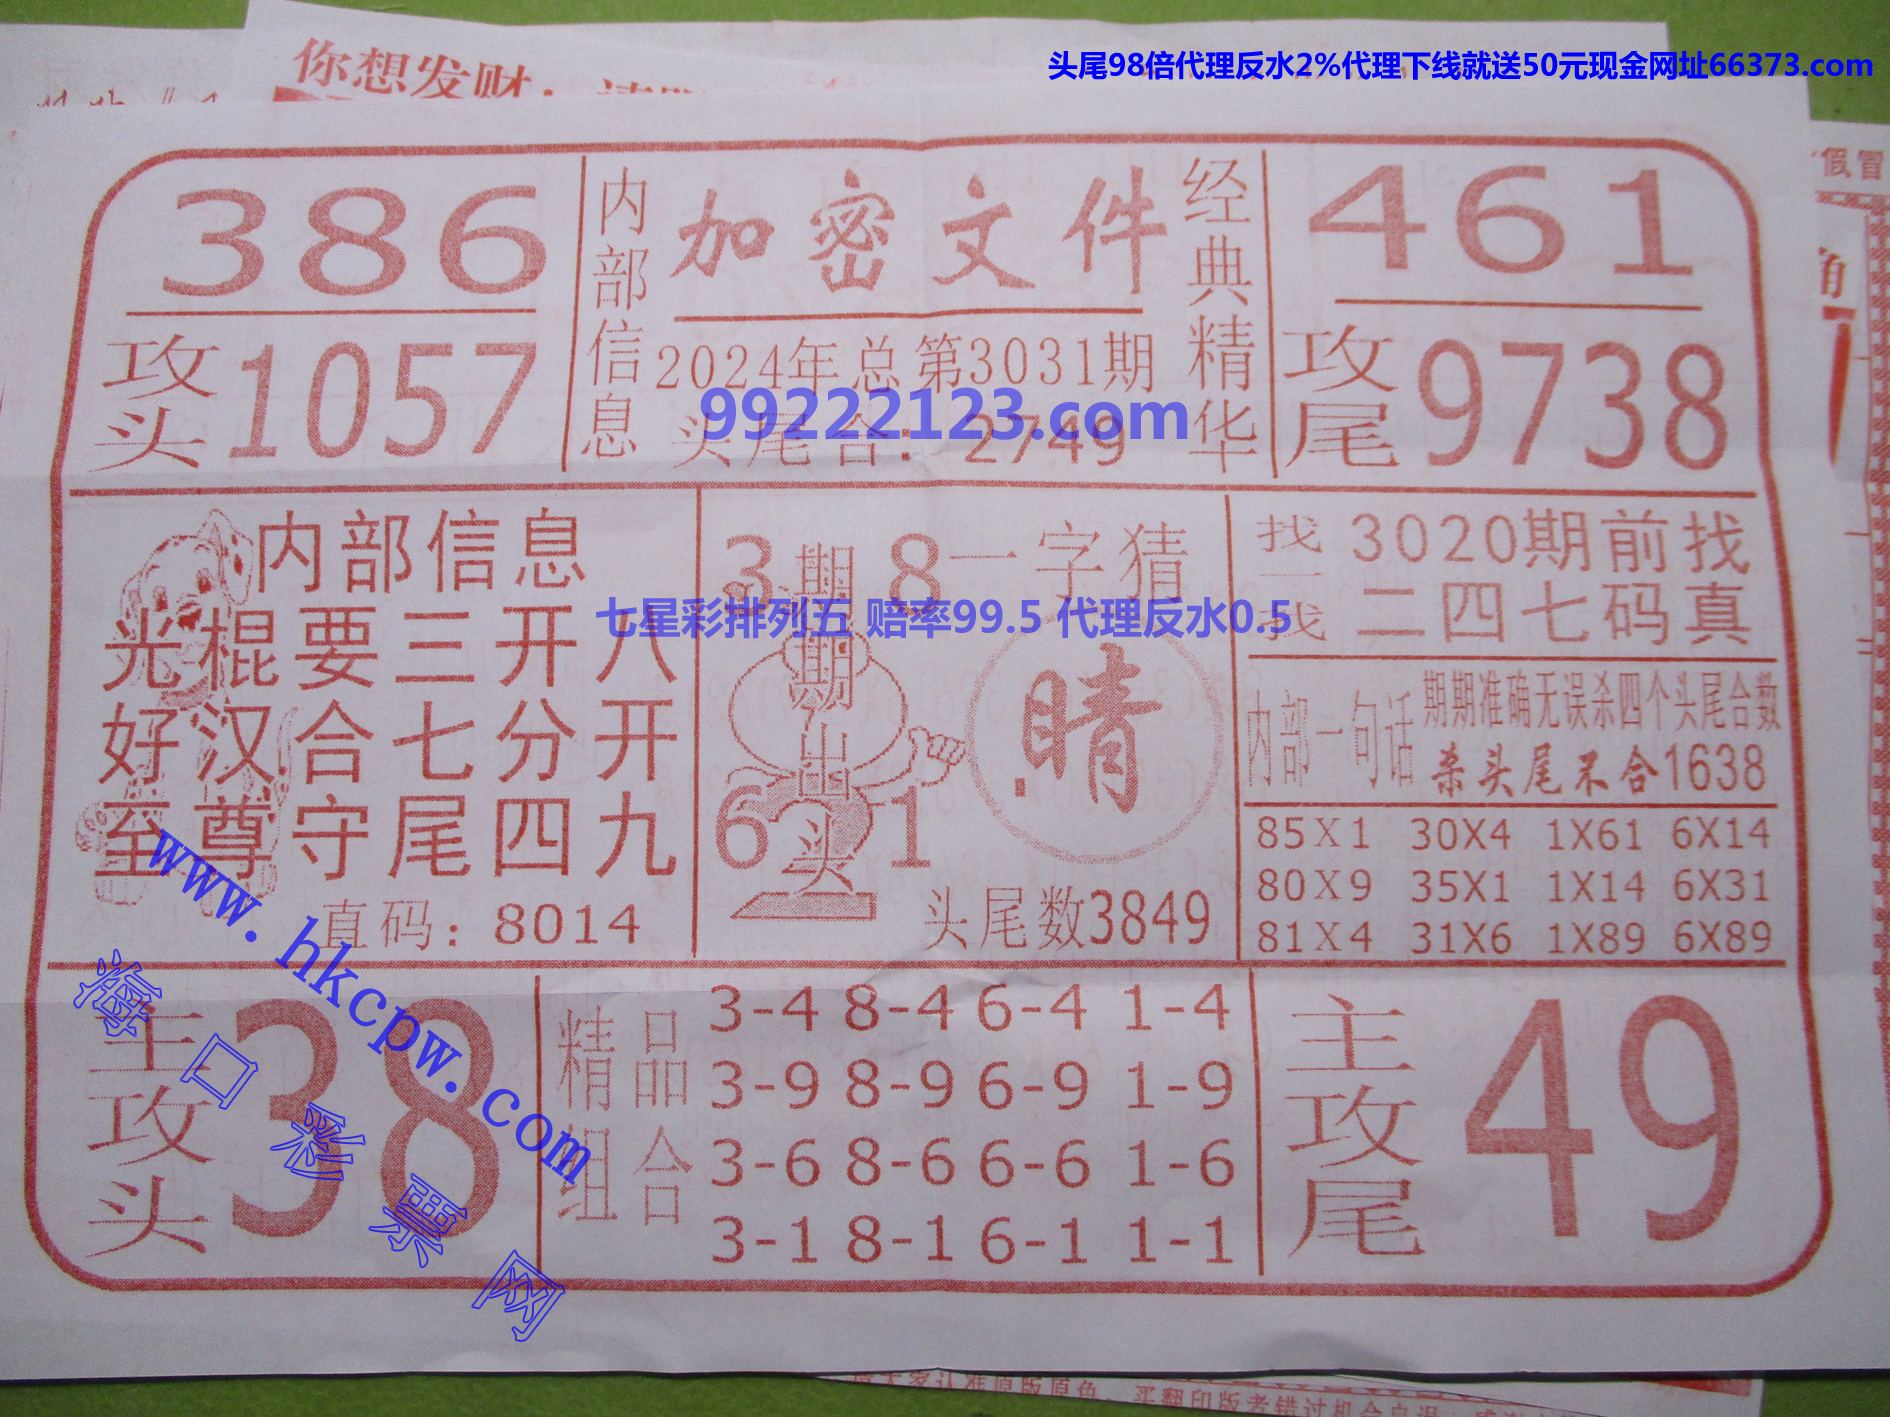 头尾98倍代理反水2%代理下线就送50元现金网址66373.com
你想发财:
假冒
386
内部信息
加密文件
经典精华
461
攻头1057
2024年总第3031期
头尾合: 2749
攻尾9738
99222123.com
内部信息
光棍要三开八
好汉合七分开
至尊守尾四九
直码: 8014
3 8
期期出头
6 1
一字猜
晴
头尾数3849
七星彩排列五 赔率99.5 代理反水0.5
找一找
3020期前找
二四七码真
内部一句话
期期准确无误杀四个头尾合数
杀头尾不合1638
85X1 30X4 1X61 6X14
80X9 35X1 1X14 6X31
81X4 31X6 1X89 6X89
主攻头
38
精品组合
3-4 8-4 6-4 1-4
3-9 8-9 6-9 1-9
3-6 8-6 6-6 1-6
3-1 8-1 6-1 1-1
主攻尾
49
www.hkcpw.com
海口彩票网